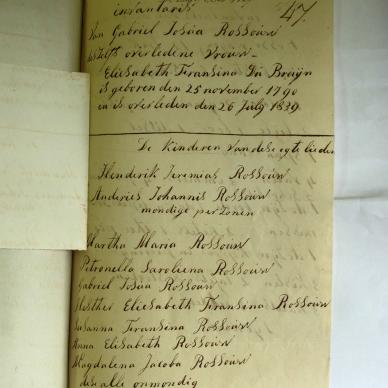 47.
inventaris
Van Gabriel Josua Rossouw
deszelfs overledene vrouw
Elisabeth Fransina Du Bruijn
is geboren den 25 november 1790
en is overleden den 26 July 1839
De Kinderen van dese egte lieden
Henderik Jeremias Rossouw
Anderies Johannis Rossouw
mondige perzonen
Martha Maria Rossouw
Petronella Saroliena Rossouw
Gabriel Josua Rossouw
Hesther Eliesabeth Fransina Rossouw
Susanna Fransina Rossouw
Anna Elisabeth Rossouw
Magdalena Jacoba Rossouw
die alle onmondig